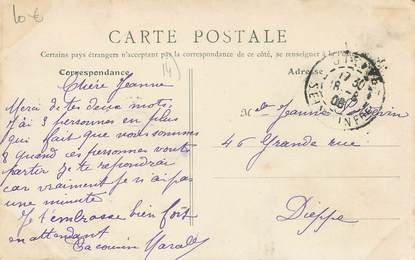 10 €
CARTE POSTALE
Certains pays étrangers n'acceptant pas la correspondance de ce côté, se renseigner à la
Correspondance
Adresse
Chère Jeanne
Merci de tes deux mots,
J'ai 3 personnes en plus
qui fait que nous sommes
8 quand ces personnes vont
partir je te repondrai
car vraiment je n'ai pas
une minute.
Je t'embrasse bien fort
en attendant
Ta cousine
Jeanne
46 Grande rue
Dieppe